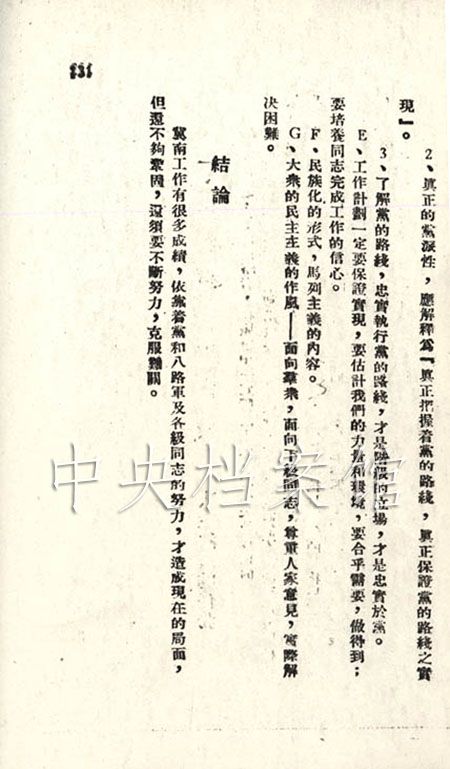 2、眞正的黨派性，應解釋爲『眞正把握着黨的路綫，眞正保證黨的路綫之實
現』。
3、了解黨的路綫，忠實執行黨的路綫，才是階級的立場，才是忠實於黨。
E、工作計劃一定要保證實現，要估計我們的力量和環境，要合乎需要，做得到；
要培養同志完成工作的信心。
F、民族化的形式，馬列主義的內容。
G、大衆的民主主義的作風——面向羣衆，面向下級同志，尊重人家意見，實際解
决困難。
結論
冀南工作有很多成績，依靠着黨和八路軍及各級同志的努力，才造成現在的局面，
但還不夠鞏固，還須要不斷努力，克服難關。
131
中央档案馆